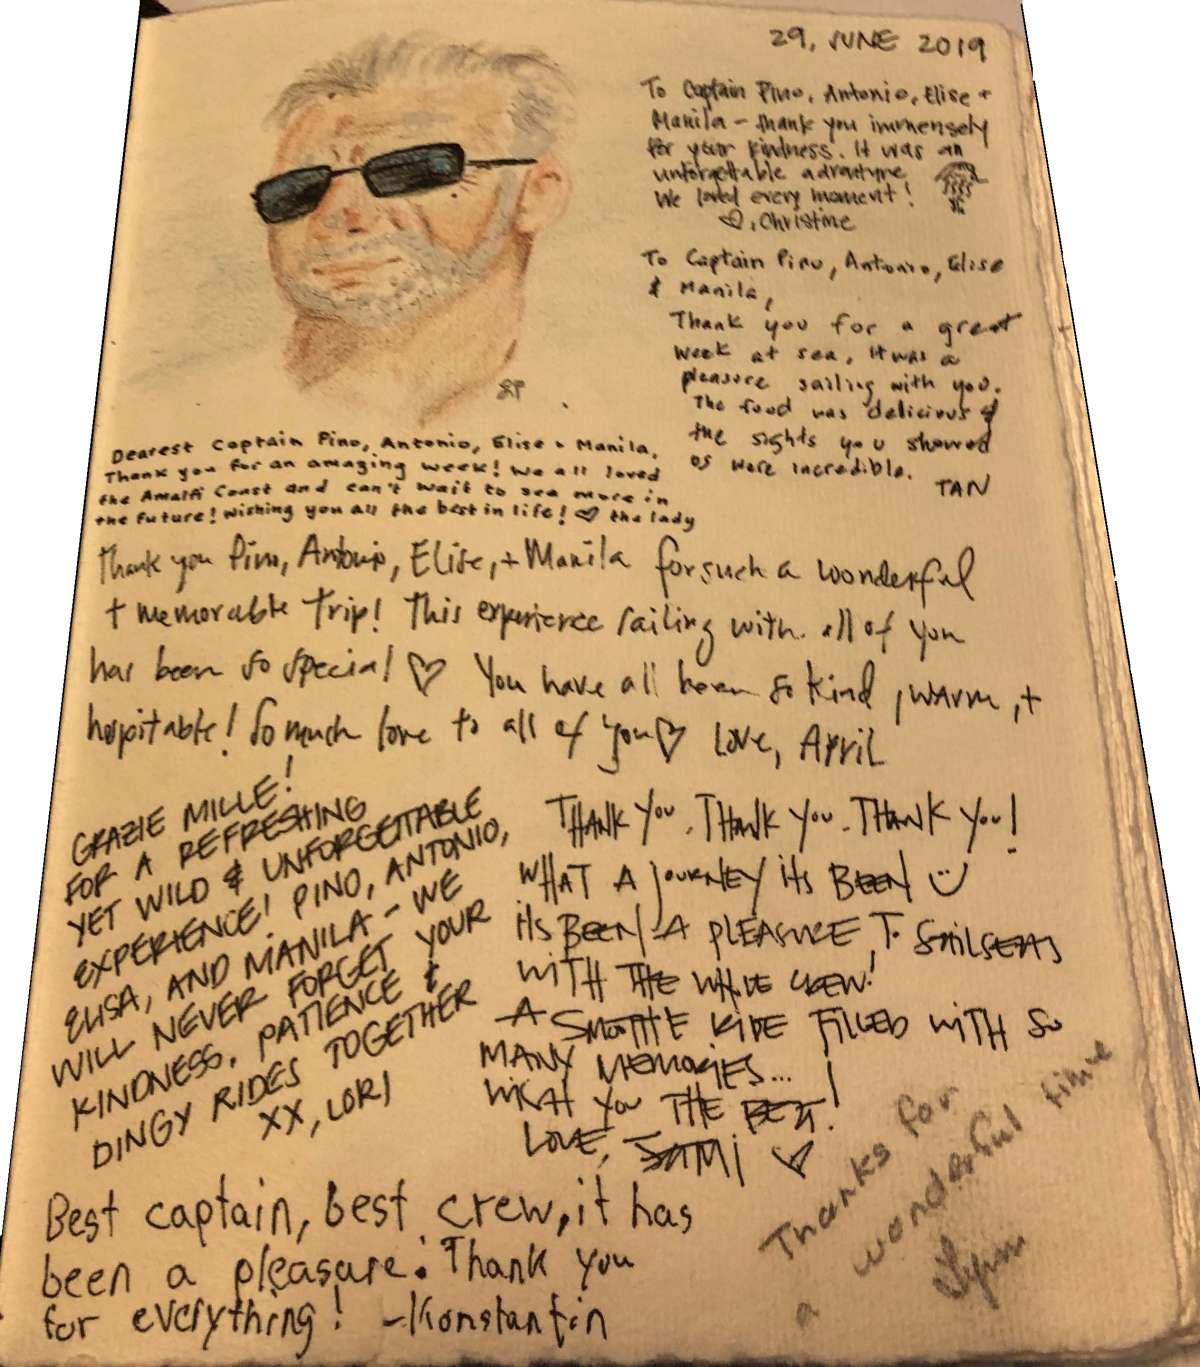 29, JUNE 2019
To Captain Pino, Antonio, Elise +
Manila - thank you immensely
for your kindness. It was an
unforgettable adventure
We loved every moment!
♡, Christine
To Captain Pino, Antonio, Elise
& Manila,
Thank you for a great
week at sea, It was a
pleasure sailing with you.
The food was delicious &
the sights you showed
us were incredible.
TAN
Dearest Captain Pino, Antonio, Elise + Manila,
Thank you for an amazing week! We all loved
the Amalfi Coast and can't wait to see more in
the future! Wishing you all the best in life! ♡ the lady
Thank you Pino, Antonio, Elise, + Manila for such a wonderful
+ memorable trip! This experience sailing with all of you
has been so special ♡ You have all been so kind, warm, +
hospitable! So much love to all of you ♡ Love, April
GRAZIE MILLE!
FOR A REFRESHING
YET WILD & UNFORGETTABLE
EXPERIENCE! PINO, ANTONIO,
ELISA, AND MANILA - WE
WILL NEVER FORGET YOUR
KINDNESS, PATIENCE &
DINGY RIDES TOGETHER
XX, LORI
THANK YOU. THANK YOU. THANK YOU!
WHAT A JOURNEY ITS BEEN
ITS BEEN A PLEASURE, TO
WITH THE WHOLE CREW!
A SMOOTHE RIDE FILLED WITH SO
MANY MEMORIES...
WISH YOU THE BEST!
LOVE, SAMI ♡
Best captain, best crew, it has
been a pleasure. Thank you
for everything! - Konstantin
Thanks for
a wonderful time